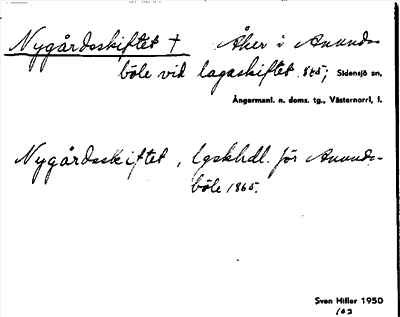 Nygårdsskiftet † Åker i Anunds-
böle vid lagaskiftet 865; Sidensjö sn,
Ångermanl. n. doms. tg., Västernorrl. l.
Nygårdsskiftet, Lgskhdl. för Anunds-
böle 1865.
Sven Hiller 1950